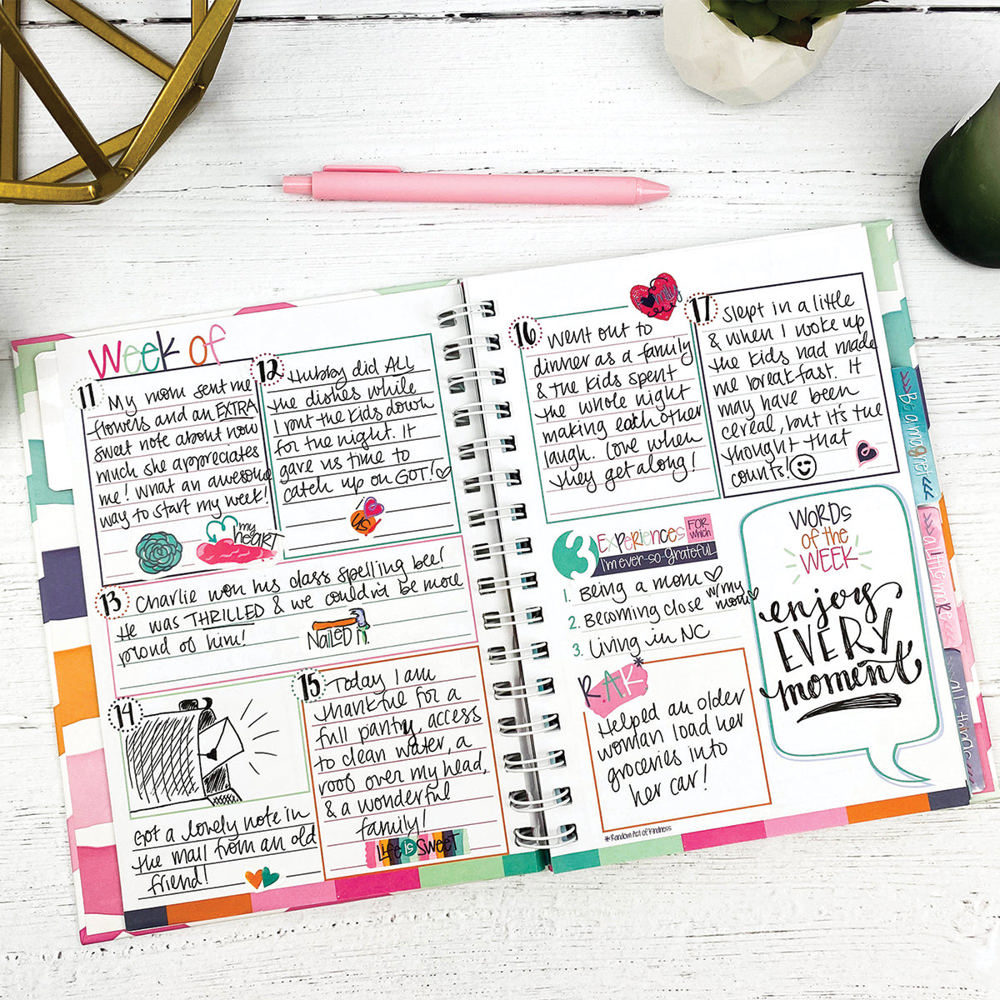 Week of
11
My mom sent me
flowers and an EXTRA
sweet note about how
much she appreciates
me! What an awesome
way to start my week!
my
heart
12
Hubby did ALL
the dishes while
I put the kids down
for the night. It
gave us time to
catch up on GOT!
13
Charlie won his class spelling bee!
He was THRILLED & we couldn't be more
proud of him!
Nailed it
14
Got a lovely note in
the mail from an old
friend!
15
Today I am
thankful for a
full pantry, access
to clean water, a
roof over my head,
& a wonderful
family!
Life is Sweet
16
Family
Went out to
dinner as a family
& the kids spent
the whole night
making each other
laugh. Love when
they get along!
17
Slept in a little
& when I woke up
the kids had made
me breakfast. It
may have been
cereal, but it's the
thought that
counts!
3 Experiences FOR which
I'm ever-so-grateful
1. Being a mom
2. Becoming close w/my mom
3. Living in NC
R.A.K*
Helped an older
woman load her
groceries into
her car!
*Random Act of Kindness
WORDS
of the
WEEK
enjoy
EVERY
moment